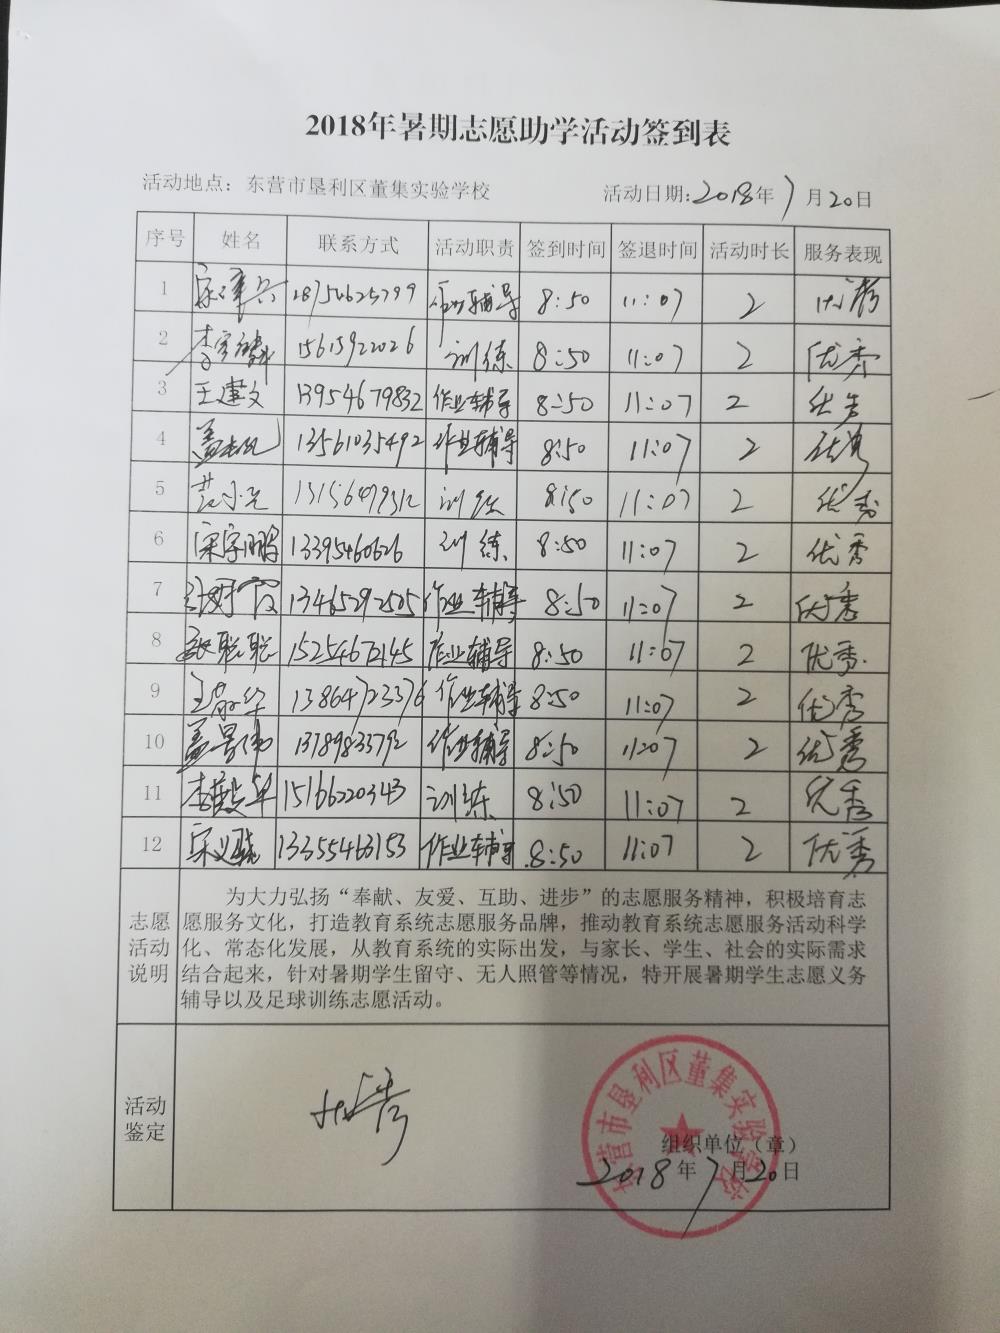 2018年暑期志愿助学活动签到表
活动地点：东营市垦利区董集实验学校 活动日期:2018年7月20日
序号 姓名 联系方式 活动职责 签到时间 签退时间 活动时长 服务表现
1 辅导 8:50 11:07 2 优秀
2 15615922026 训练 8:50 11:07 2 优秀
3 王建文 13954679832 作业辅导 8:50 11:07 2 优秀
4 13561035492 作业辅导 8:50 11:07 2 优秀
5 训练 8:50 11:07 2 优秀
6 宋字鹏 13395460626 训练 8:50 11:07 2 优秀
7 13465292505 作业辅导 8:50 11:07 2 优秀
8 张聪聪 15254672145 作业辅导 8:50 11:07 2 优秀
9 13864723376 作业辅导 8:50 11:07 2 优秀
10 盖景伟 13789833792 作业辅导 8:50 11:07 2 优秀
11 15166220343 训练 8:50 11:07 2 优秀
12 13355463153 作业辅导 8:50 11:07 2 优秀
志愿活动说明
为大力弘扬“奉献、友爱、互助、进步”的志愿服务精神，积极培育志
愿服务文化，打造教育系统志愿服务品牌，推动教育系统志愿服务活动科学
化、常态化发展，从教育系统的实际出发，与家长、学生、社会的实际需求
结合起来，针对暑期学生留守、无人照管等情况，特开展暑期学生志愿义务
辅导以及足球训练志愿活动。
活动鉴定
优秀
东营市垦利区董集实验学校
组织单位（章）
2018年7月20日